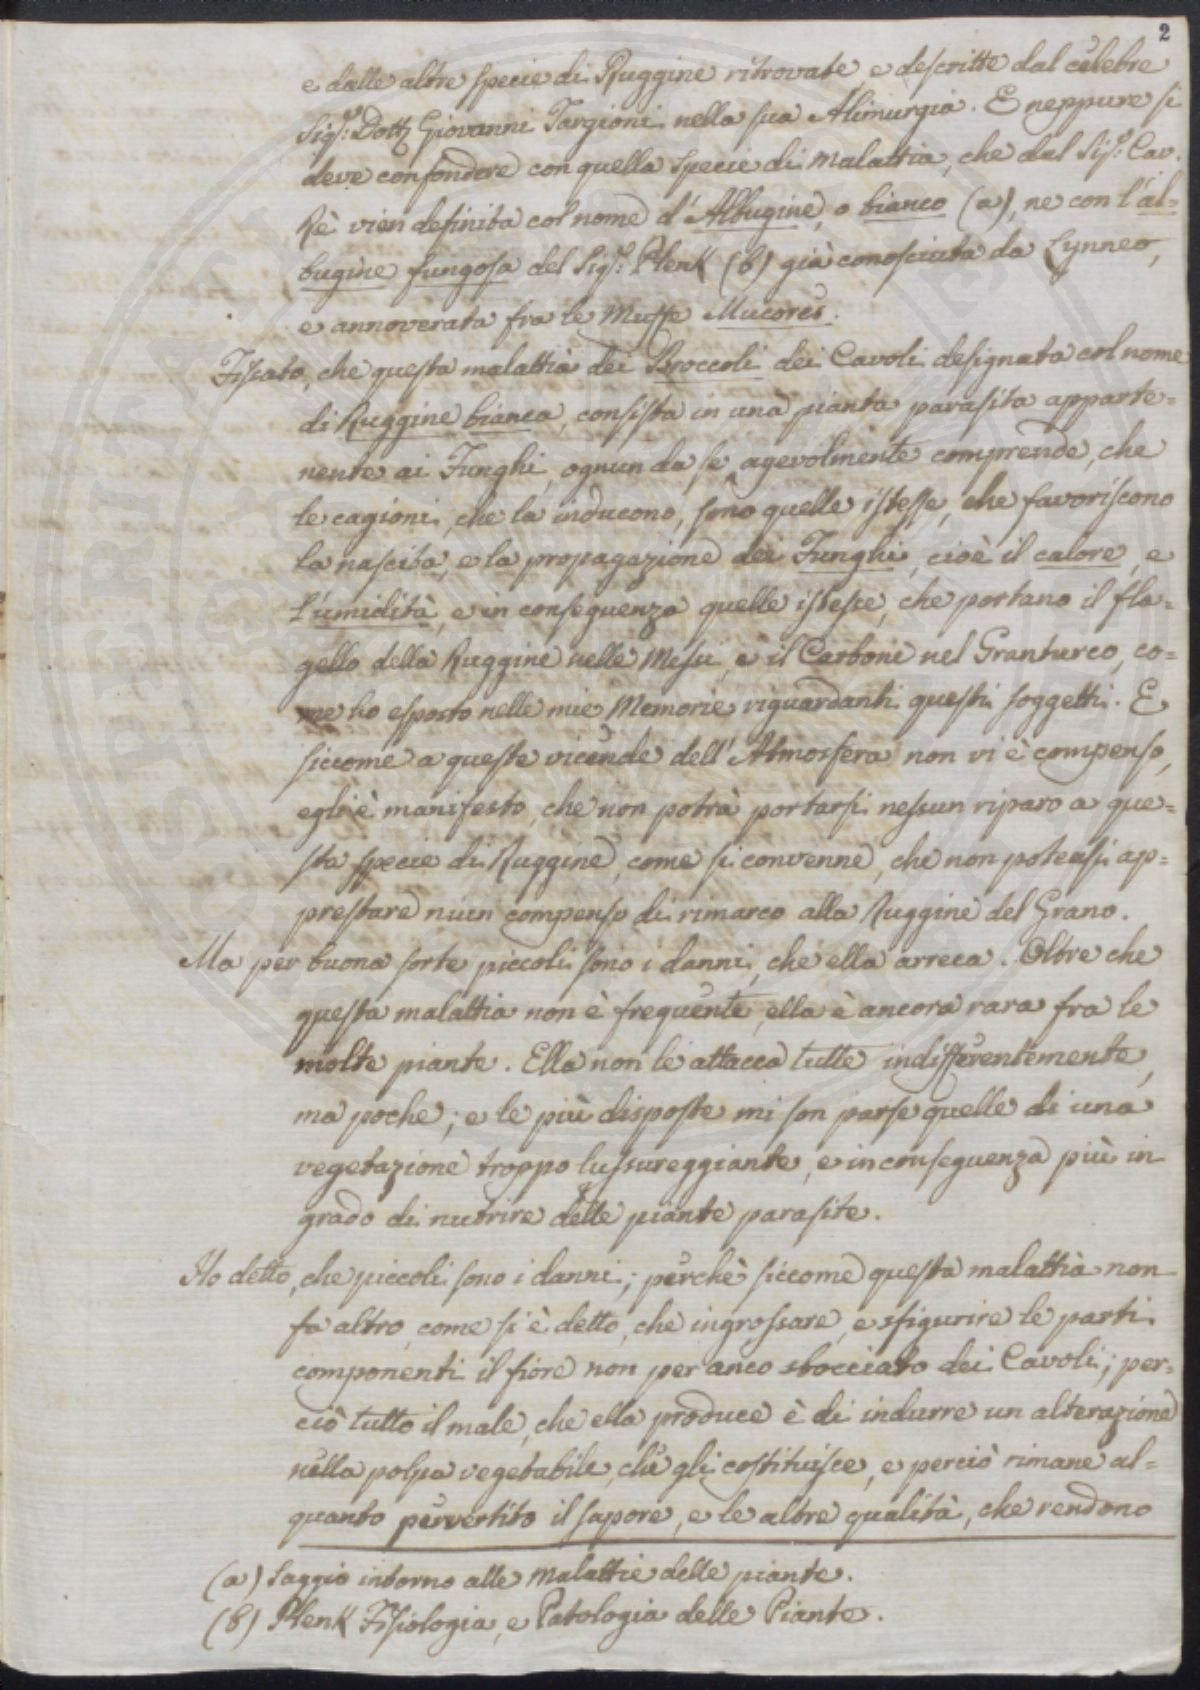 2
e dalle altre specie di Ruggine ritrovate, e descritte dal celebre
Sig.r Dott. Giovanni Targioni nella sua Alimurgia. E neppure si
deve confondere con quella specie di malattia, che dal Sig.r Cav.
Rè vien definita col nome d'Albugine, o bianco (a), ne con l'al=
bugine fungosa del Sig.r Plenk (b) già conosciuta da Lynneo,
e annoverata fra le Muffe Mucores.
Fissato, che questa malattia dei Broccoli dei Cavoli designata col nome
di Ruggine bianca, consista in una pianta parasita apparte=
nente ai Funghi, ognun da se agevolmente comprende, che
le cagioni, che la inducono, sono quelle istesse, che favoriscono
la nascita, e la propagazione dei Funghi, cioè il calore, e
l'umidità, e in conseguenza quelle istesse, che portano il fla=
gello della Ruggine nelle Messi, e il Carbone nel Granturco, co=
me ho esposto nelle mie Memorie riguardanti questi soggetti. E
siccome a queste vicende dell'Atmosfera non vi è compenso,
egli è manifesto, che non potrà portarsi nessun riparo a que=
sta specie di Ruggine, come si convenne, che non poteasi ap=
prestare niun compenso di rimarco alla Ruggine del Grano.
Ma per buona sorte piccoli sono i danni, che ella arreca. Oltre che
questa malattia non è frequente, ella è ancora rara fra le
molte piante. Ella non le attacca tutte indifferentemente,
ma poche; e le più disposte mi son parse quelle di una
vegetazione troppo lussureggiante, e in conseguenza più in
grado di nutrire delle piante parasite.
Ho detto, che piccoli sono i danni; perchè siccome questa malattia non
fa altro, come si è detto, che ingrossare, e sfigurire le parti
componenti il fiore non per anco sbocciato dei Cavoli; per=
ciò tutto il male, che ella produce è di indurre un alterazione
nella polpa vegetabile, che gli costituisce, e perciò rimane al=
quanto pervertito il sapore, e le altre qualità, che rendono
(a) Saggio intorno alle Malattie delle piante.
(b) Plenk Fisiologia, e Patologia delle Piante.